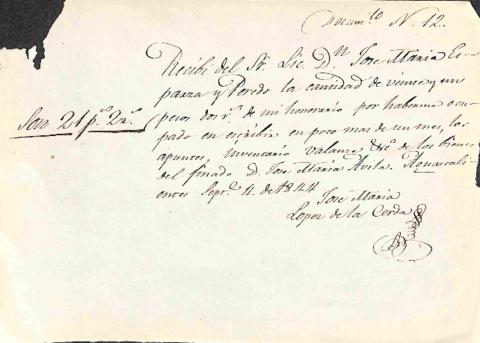 Documto. N. 12.
Recibí del Sr. Lic. Dn. Jose Maria Es-
parza y Peredo la cantidad de veinte y un
pesos dos rs. de mi honorario por haberme ocu-
Son 21 ps. 2 rs.
pado en escribir en poco mas de un mes, los
apuntes, Inventario valance &c. de los bienes
del finado D. Jose Maria Avila. Aguascali-
entes Sepe. 4. de 1844
Jose Maria
Lopez de la Cerda